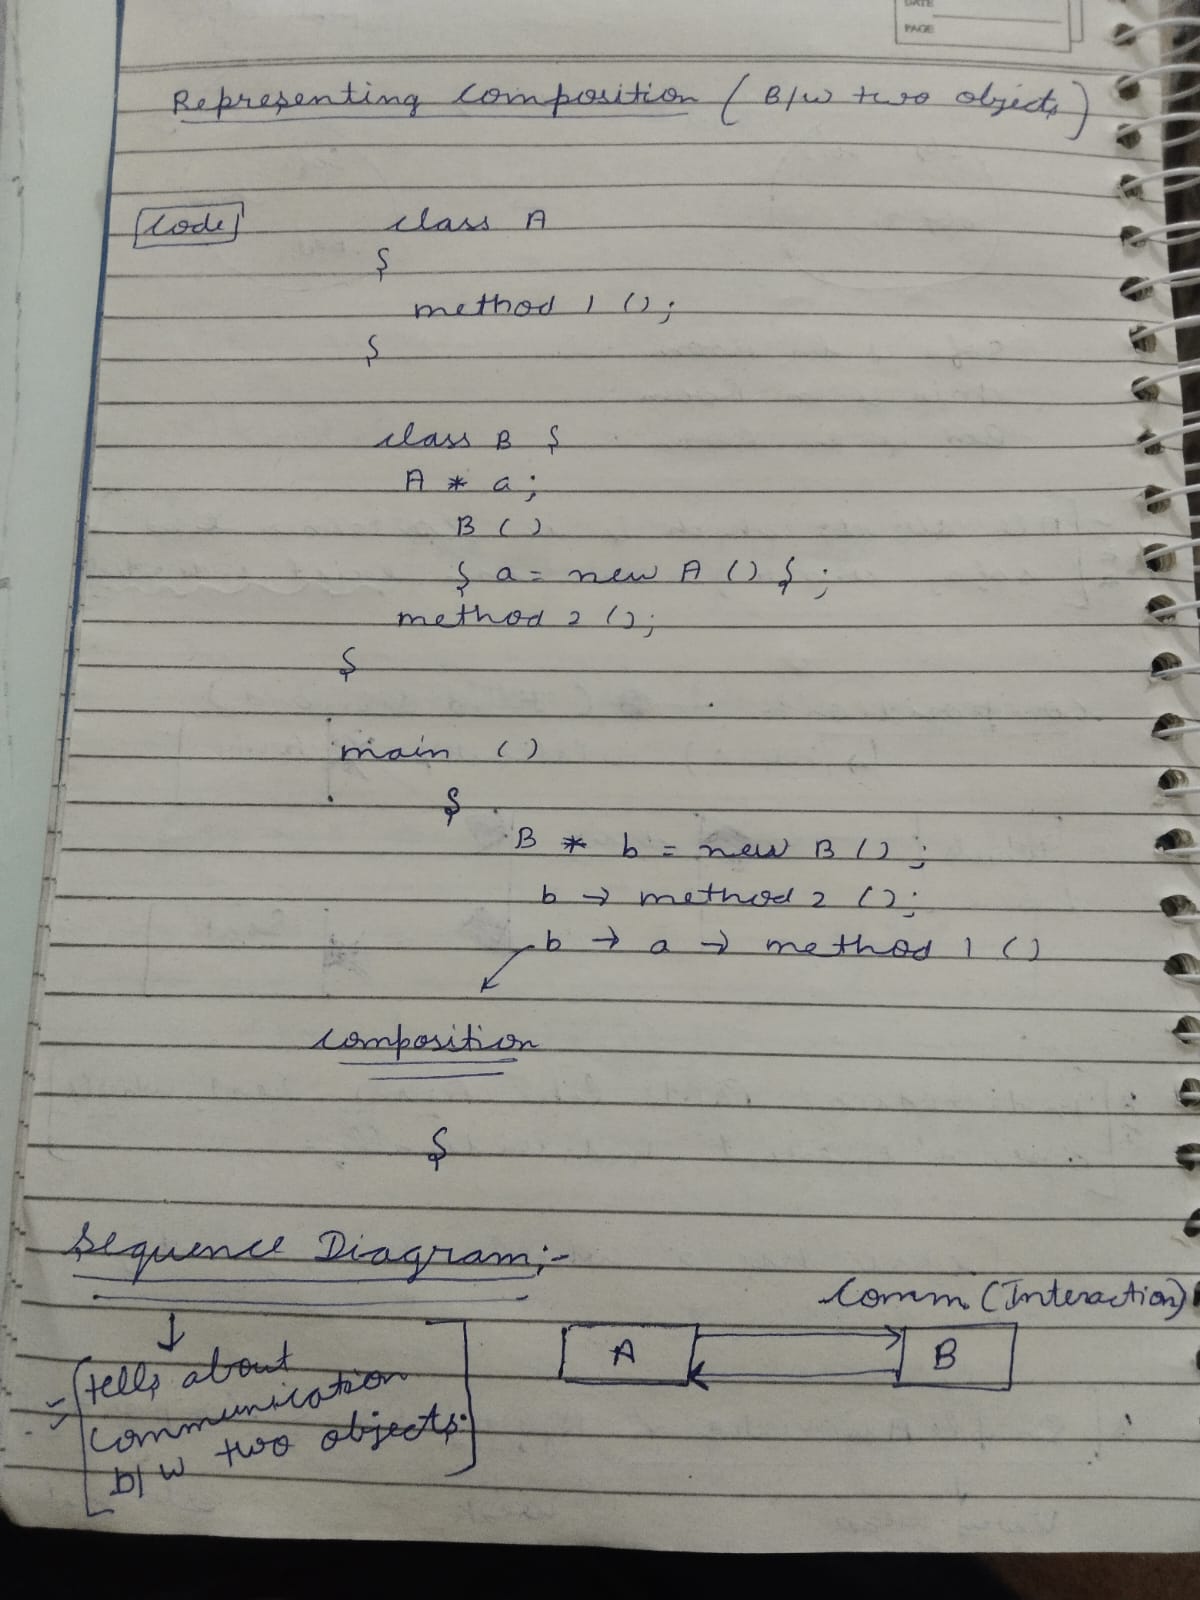 DATE
PAGE
Representing Composition ( B/w two objects )
Code
class A
{
method 1 ();
}
class B {
A * a;
B ()
{ a = new A () } ;
method 2 ();
}
main ()
{
B * b = new B () ;
b → method 2 ();
b → a → method 1 ()
Composition
}
Sequence Diagram:-
Comm. (Interaction)
A
B
tells about
communication
b/w two objects.